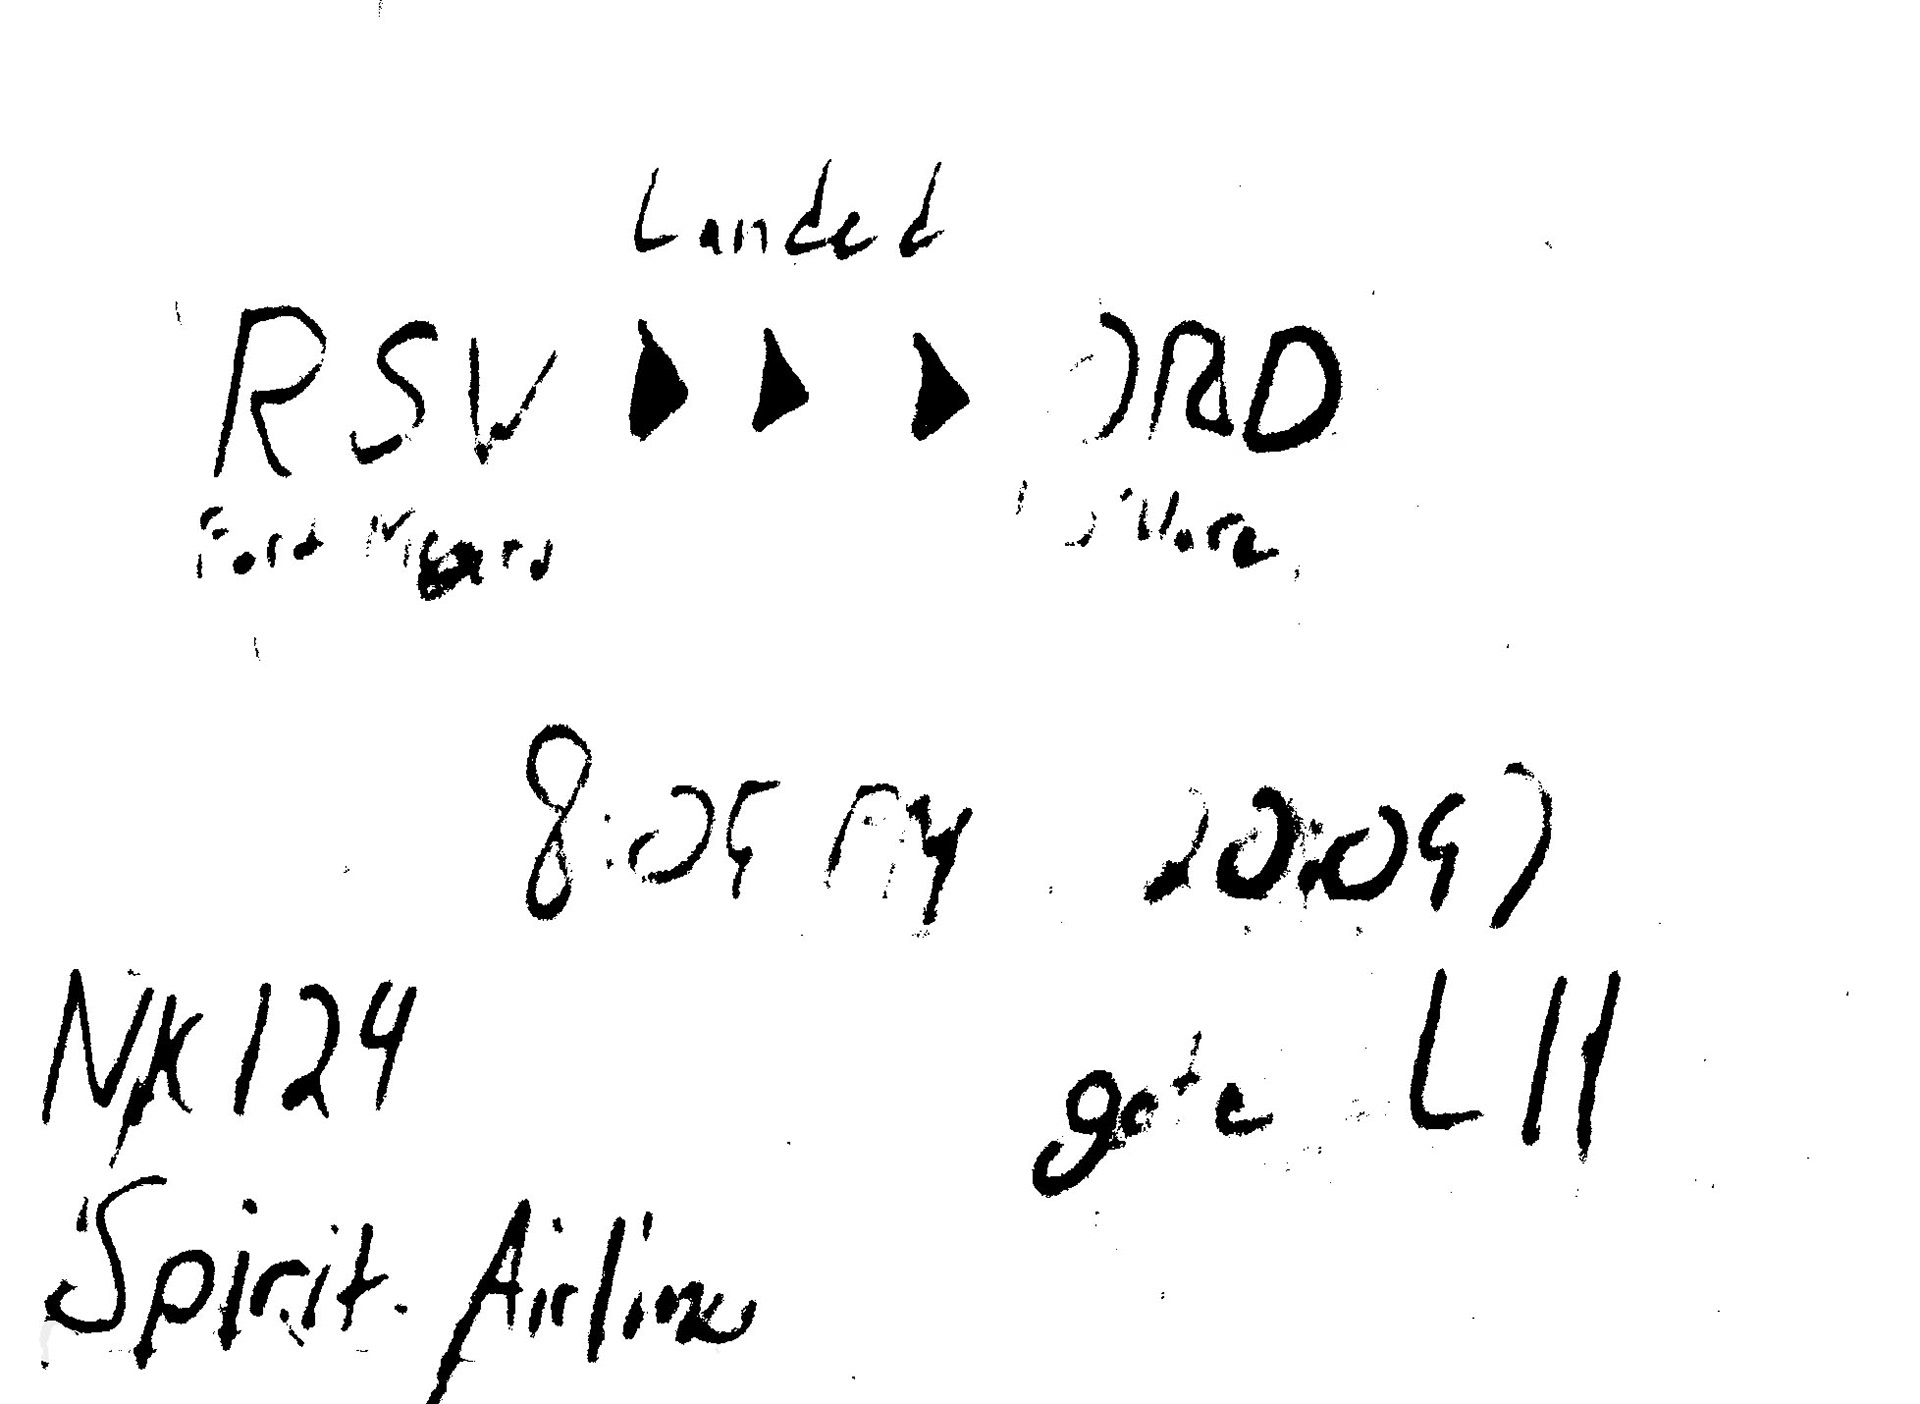 Landed
RSV ▶ ▶ ▶ ORD
Fort Myers
8:05 PM 20:05)
NK124
gate L11
Spirit Airlines